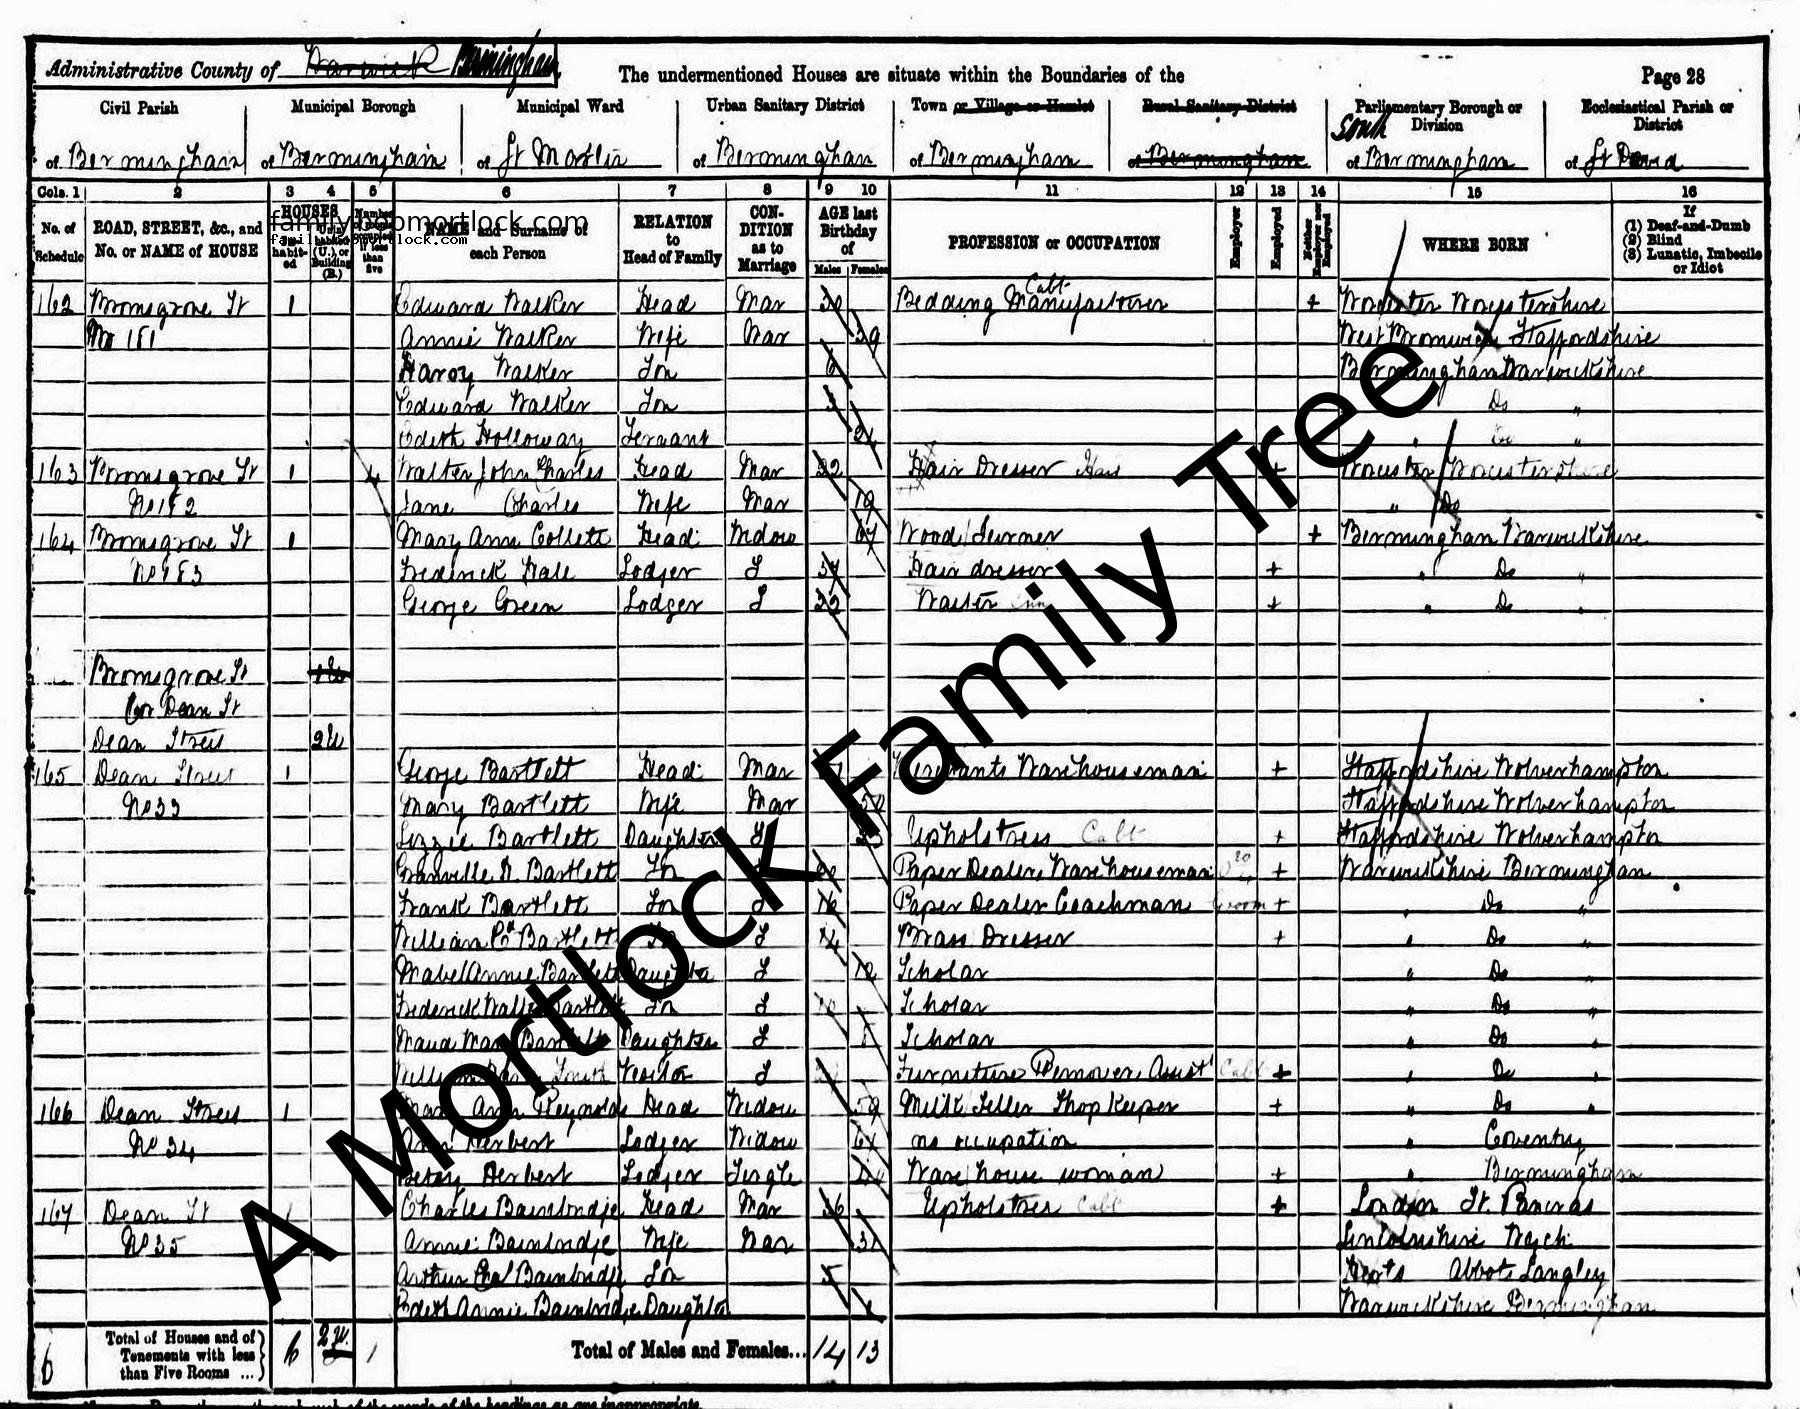 Administrative County of Warwick Birmingham
The undermentioned Houses are situate within the Boundaries of the
Page 28
Civil Parish Municipal Borough Municipal Ward Urban Sanitary District Town or Village or Hamlet Rural Sanitary District Parliamentary Borough or Division Ecclesiastical Parish or District
of Birmingham of Birmingham of St Martin of Birmingham of Birmingham of Birmingham South of Birmingham of St David
Cols. 1 2 3 4 5 6 7 8 9 10 11 12 13 14 15 16
No. of Schedule ROAD, STREET, &c., and No. or NAME of HOUSE HOUSES Inhabited Uninhabited (U.), or Building (B.) Number of rooms occupied if less than five NAME and Surname of each Person RELATION to Head of Family CONDITION as to Marriage AGE last Birthday of Males Females PROFESSION or OCCUPATION Employer Employed Neither Employer nor Employed WHERE BORN If (1) Deaf-and-Dumb (2) Blind (3) Lunatic, Imbecile or Idiot
family.bobmortlock.com
family.bobmortlock.com
162 Bromsgrove St 1 Edward Walker Head Mar 30 Bedding Manufacturer Cabt + Worcester Worcestershire
No 181 Annie Walker Wife Mar 39 West Bromwich Staffordshire
Harry Walker Son 6 Birmingham Warwickshire
Edward Walker Son 3 Do "
Edith Holloway Servant 21 " Do "
163 Bromsgrove St 1 4 Walter John Charles Head Mar 22 Hair Dresser Hair + Worcester Worcestershire
No 182 Jane Charles Wife Mar 19 " Do
164 Bromsgrove St 1 Mary Ann Collett Head Widow 67 Wood Turner + Birmingham Warwickshire
No 183 Frederick Hall Lodger S 37 Hair dresser + " Do "
George Green Lodger S 22 Waiter Inn + " Do "
Bromsgrove St 1 U
Cor Dean St
Dean Street 2 U
165 Dean Street 1 George Bartlett Head Mar Merchants Warehouseman + Staffordshire Wolverhampton
No 33 Mary Bartlett Wife Mar 50 Staffordshire Wolverhampton
Lizzie Bartlett Daughter S Upholstress Cabt + Staffordshire Wolverhampton
Granville Bartlett Son S 20 Paper Dealers Warehouseman + Warwickshire Birmingham
Frank Bartlett Son S 16 Paper Dealer Coachman Groom + " Do "
William Bartlett Son S 14 Brass Dresser + " Do "
Mabel Annie Bartlett Daughter S 12 Scholar " Do "
Frederick Walter Bartlett Son S 10 Scholar " Do "
Maud May Bartlett Daughter S 8 Scholar " Do "
William Smith Visitor S Furniture Remover Assist Cabt + " Do "
166 Dean Street 1 Mary Ann Reynolds Head Widow 59 Milk Seller Shop Keeper + " Do "
No 34 Ann Herbert Lodger Widow 61 no occupation " Coventry
Betsy Herbert Lodger Single Warehouse woman + " Birmingham
167 Dean St 1 Charles Bainbridge Head Mar 36 Upholsterer Cabt + London St. Pancras
No 35 Annie Bainbridge Wife Mar 31 Lincolnshire
Arthur Chas Bainbridge Son 5 Herts Abbots Langley
Edith Annie Bainbridge Daughter 1 Warwickshire Birmingham
6 Total of Houses and of Tenements with less than Five Rooms ... 6 2 U. 1 Total of Males and Females... 14 13
A Mortlock Family Tree